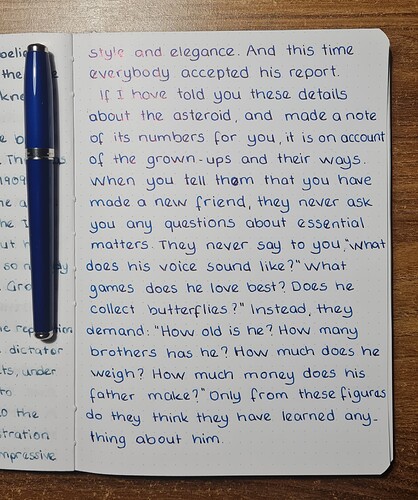 style and elegance. And this time
everybody accepted his report.
If I have told you these details
about the asteroid, and made a note
of its numbers for you, it is on account
of the grown-ups and their ways.
When you tell them that you have
made a new friend, they never ask
you any questions about essential
matters. They never say to you, "What
does his voice sound like?" What
games does he love best? Does he
collect butterflies?" Instead, they
demand: "How old is he? How many
brothers has he? How much does he
weigh? How much money does his
father make?" Only from these figures
do they think they have learned any-
thing about him.
the
1909
so
dictator
under
to
to the